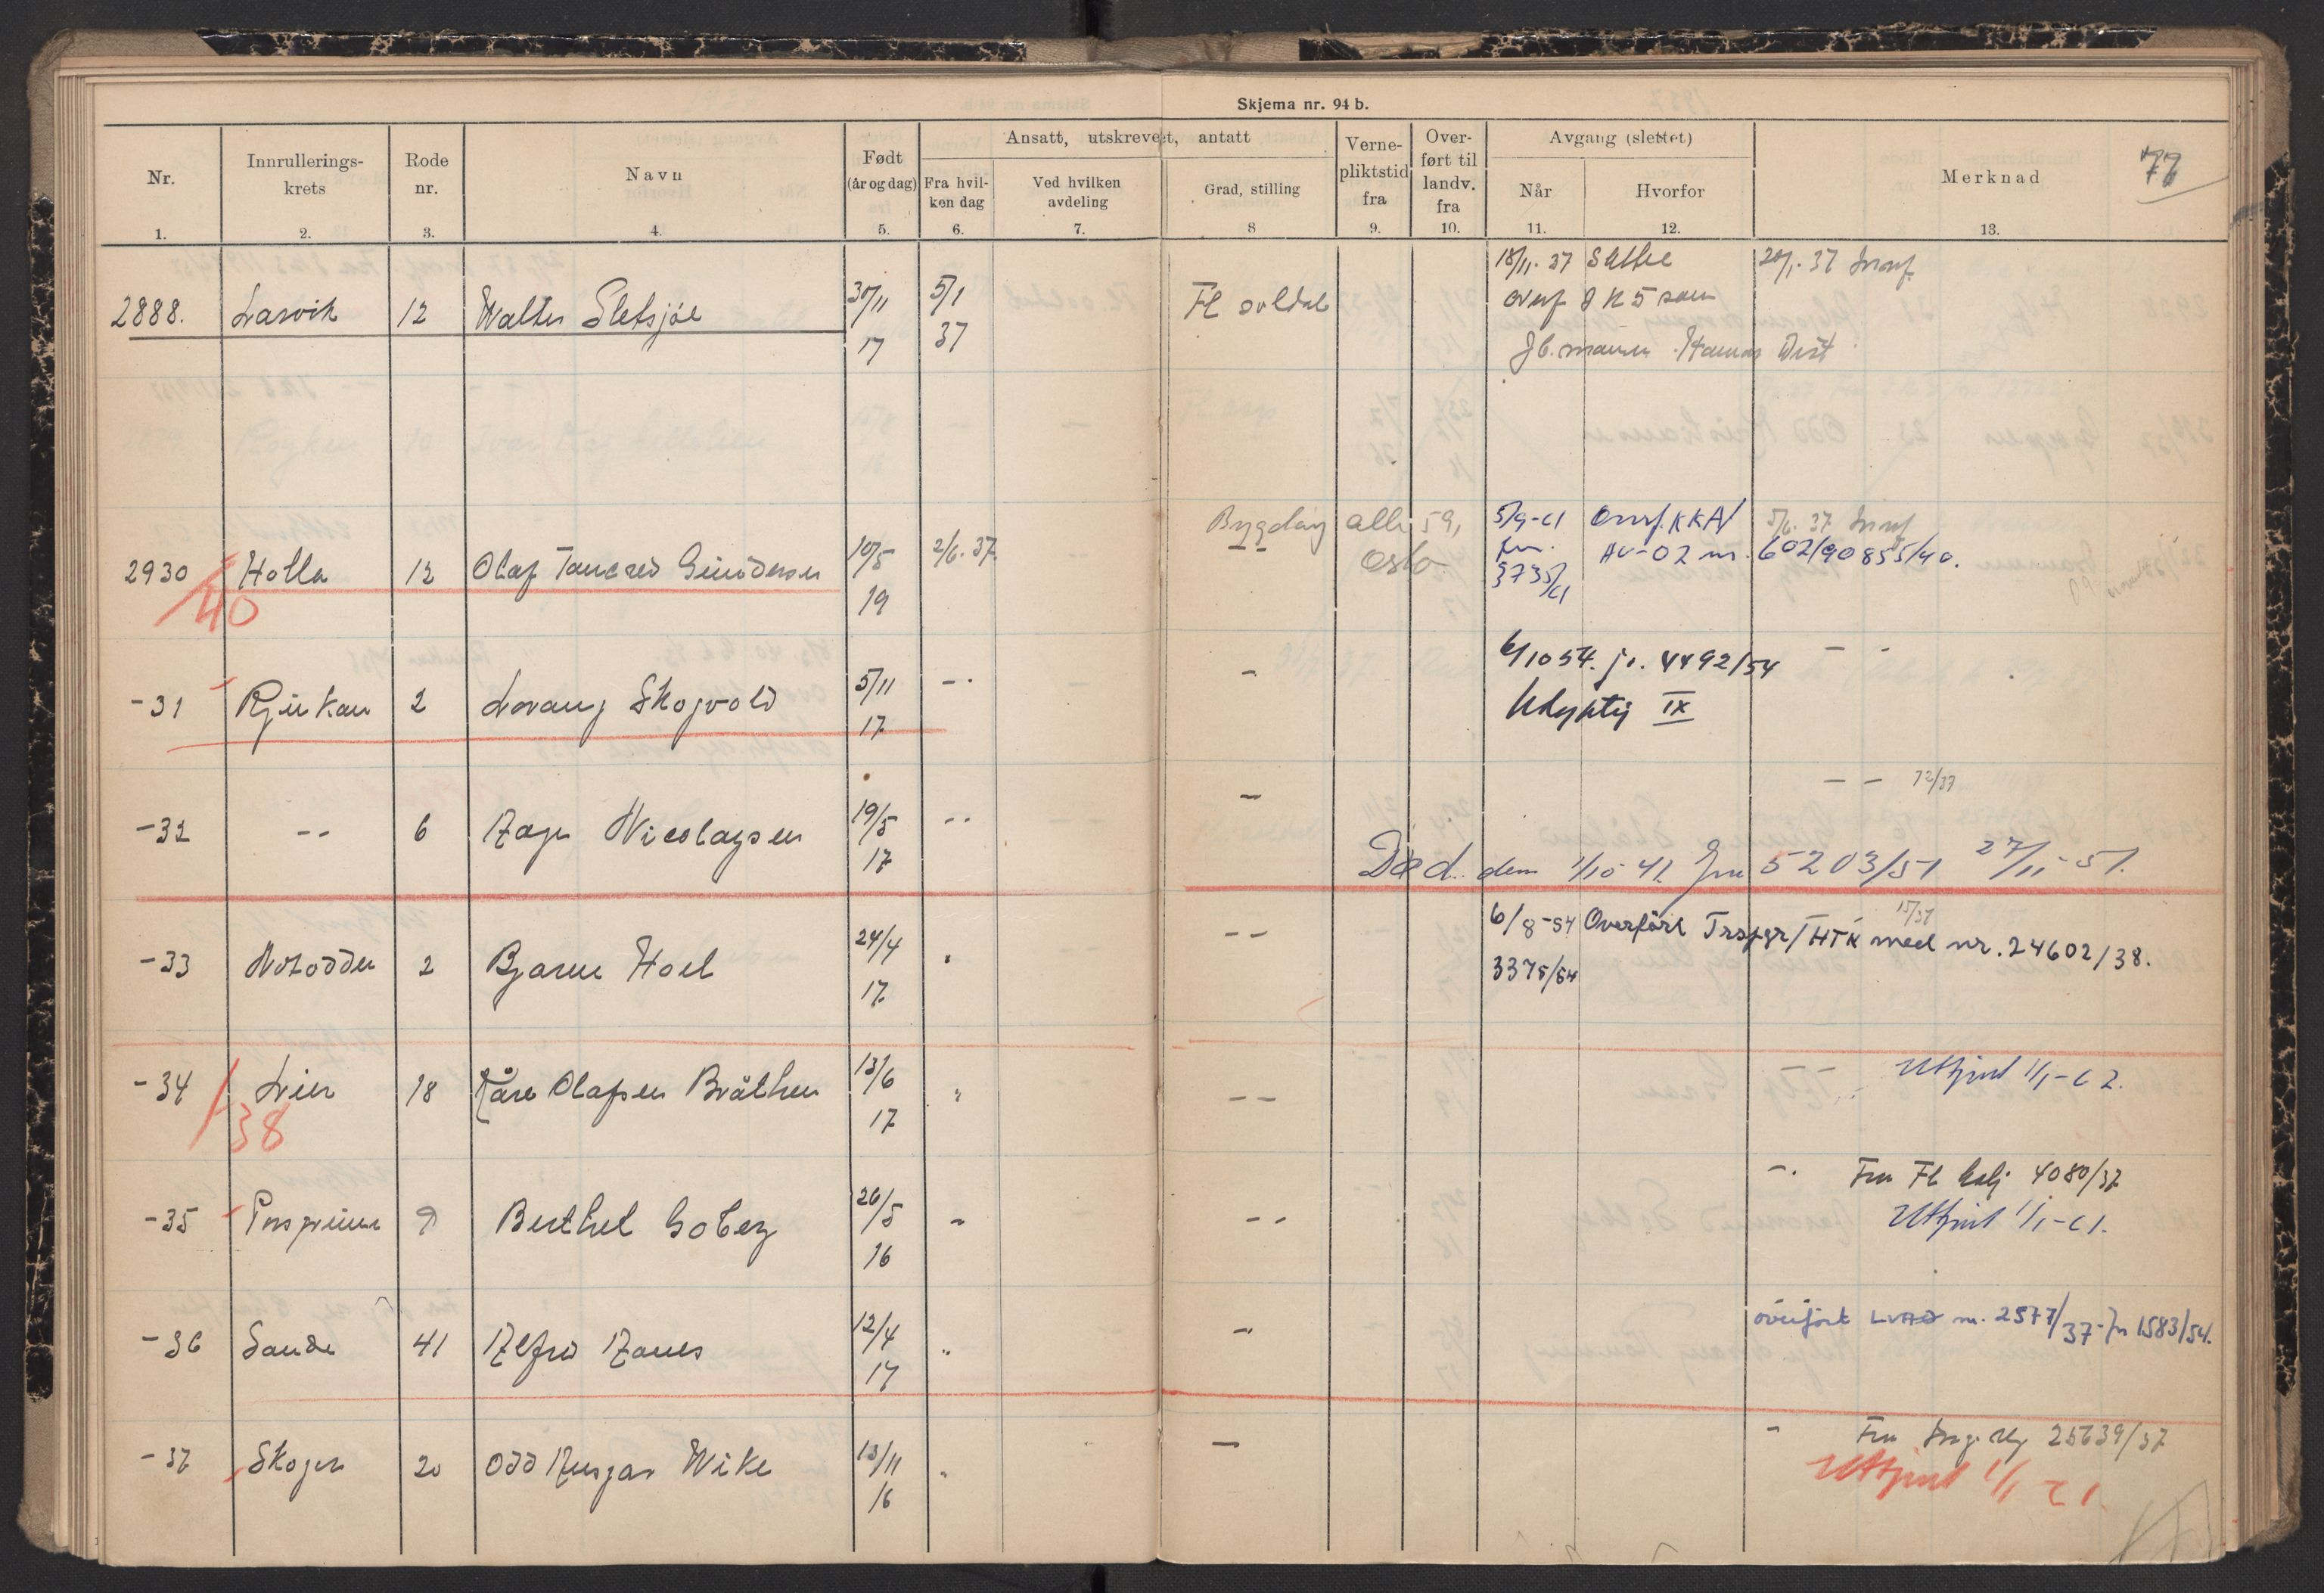 Skjema nr. 94 b.
77
Nr. Innrullerings-krets Rode nr. Navn Født (år og dag) Ansatt, utskrevet, antatt Verne-pliktstid fra Over-ført til landv. fra Avgang (slettet) Merknad
Fra hvil-ken dag Ved hvilken avdeling Grad, stilling Når Hvorfor
1. 2. 3. 4. 5. 6. 7. 8 9. 10. 11. 12. 13.
18/11. 37 20/1. 37
2888. Larvik 12 Walter Sletsjøe 30/11 5/1 Fl soldat
17 37
Bygdøy alle 59, 5/9-61 Overf. KKA/ 5/6. 37
2930 Holla 12 Olaf Tancred Gundersen 10/5 2/6. 37. -- Oslo jnr. AV-02 nr. 602/90855/40.
40 19 3735/61
6/10 54. jr. 4492/54 - -
-31 Rjukan 2 Lorang Skogvold 5/11 -- -
17 Udyktig IX
- - 72/37
-32 -- 6 Aage Nicolaysen 19/5 -- -
17 Død. dem 1/10 41. Jnr 5203/51 27/11-51.
15/37
6/8-54 Overført Trspgr/HTK med nr. 24602/38.
-33 Notodden 2 Bjarne Hoel 24/4 " --
17. 3375/54
-34 Lier 18 Kåre Olafsen Bråthen 13/6 " -- -- Uttjent 1/1-62.
38 17
-. Fra Fl 4080/37
-35 Porsgrunn 9 Berthel Goberg 26/5 - -- Uttjent 1/1-61.
16
overført LVAD nr. 2577/37- jr 1583/54.
-36 Sande 41 Alfred Aanes 12/4 " -
17
- Fra 25639/37
-37 Skoger 20 Odd Ansgar Wike 13/11 " — Uttjent 1/1 61.
16